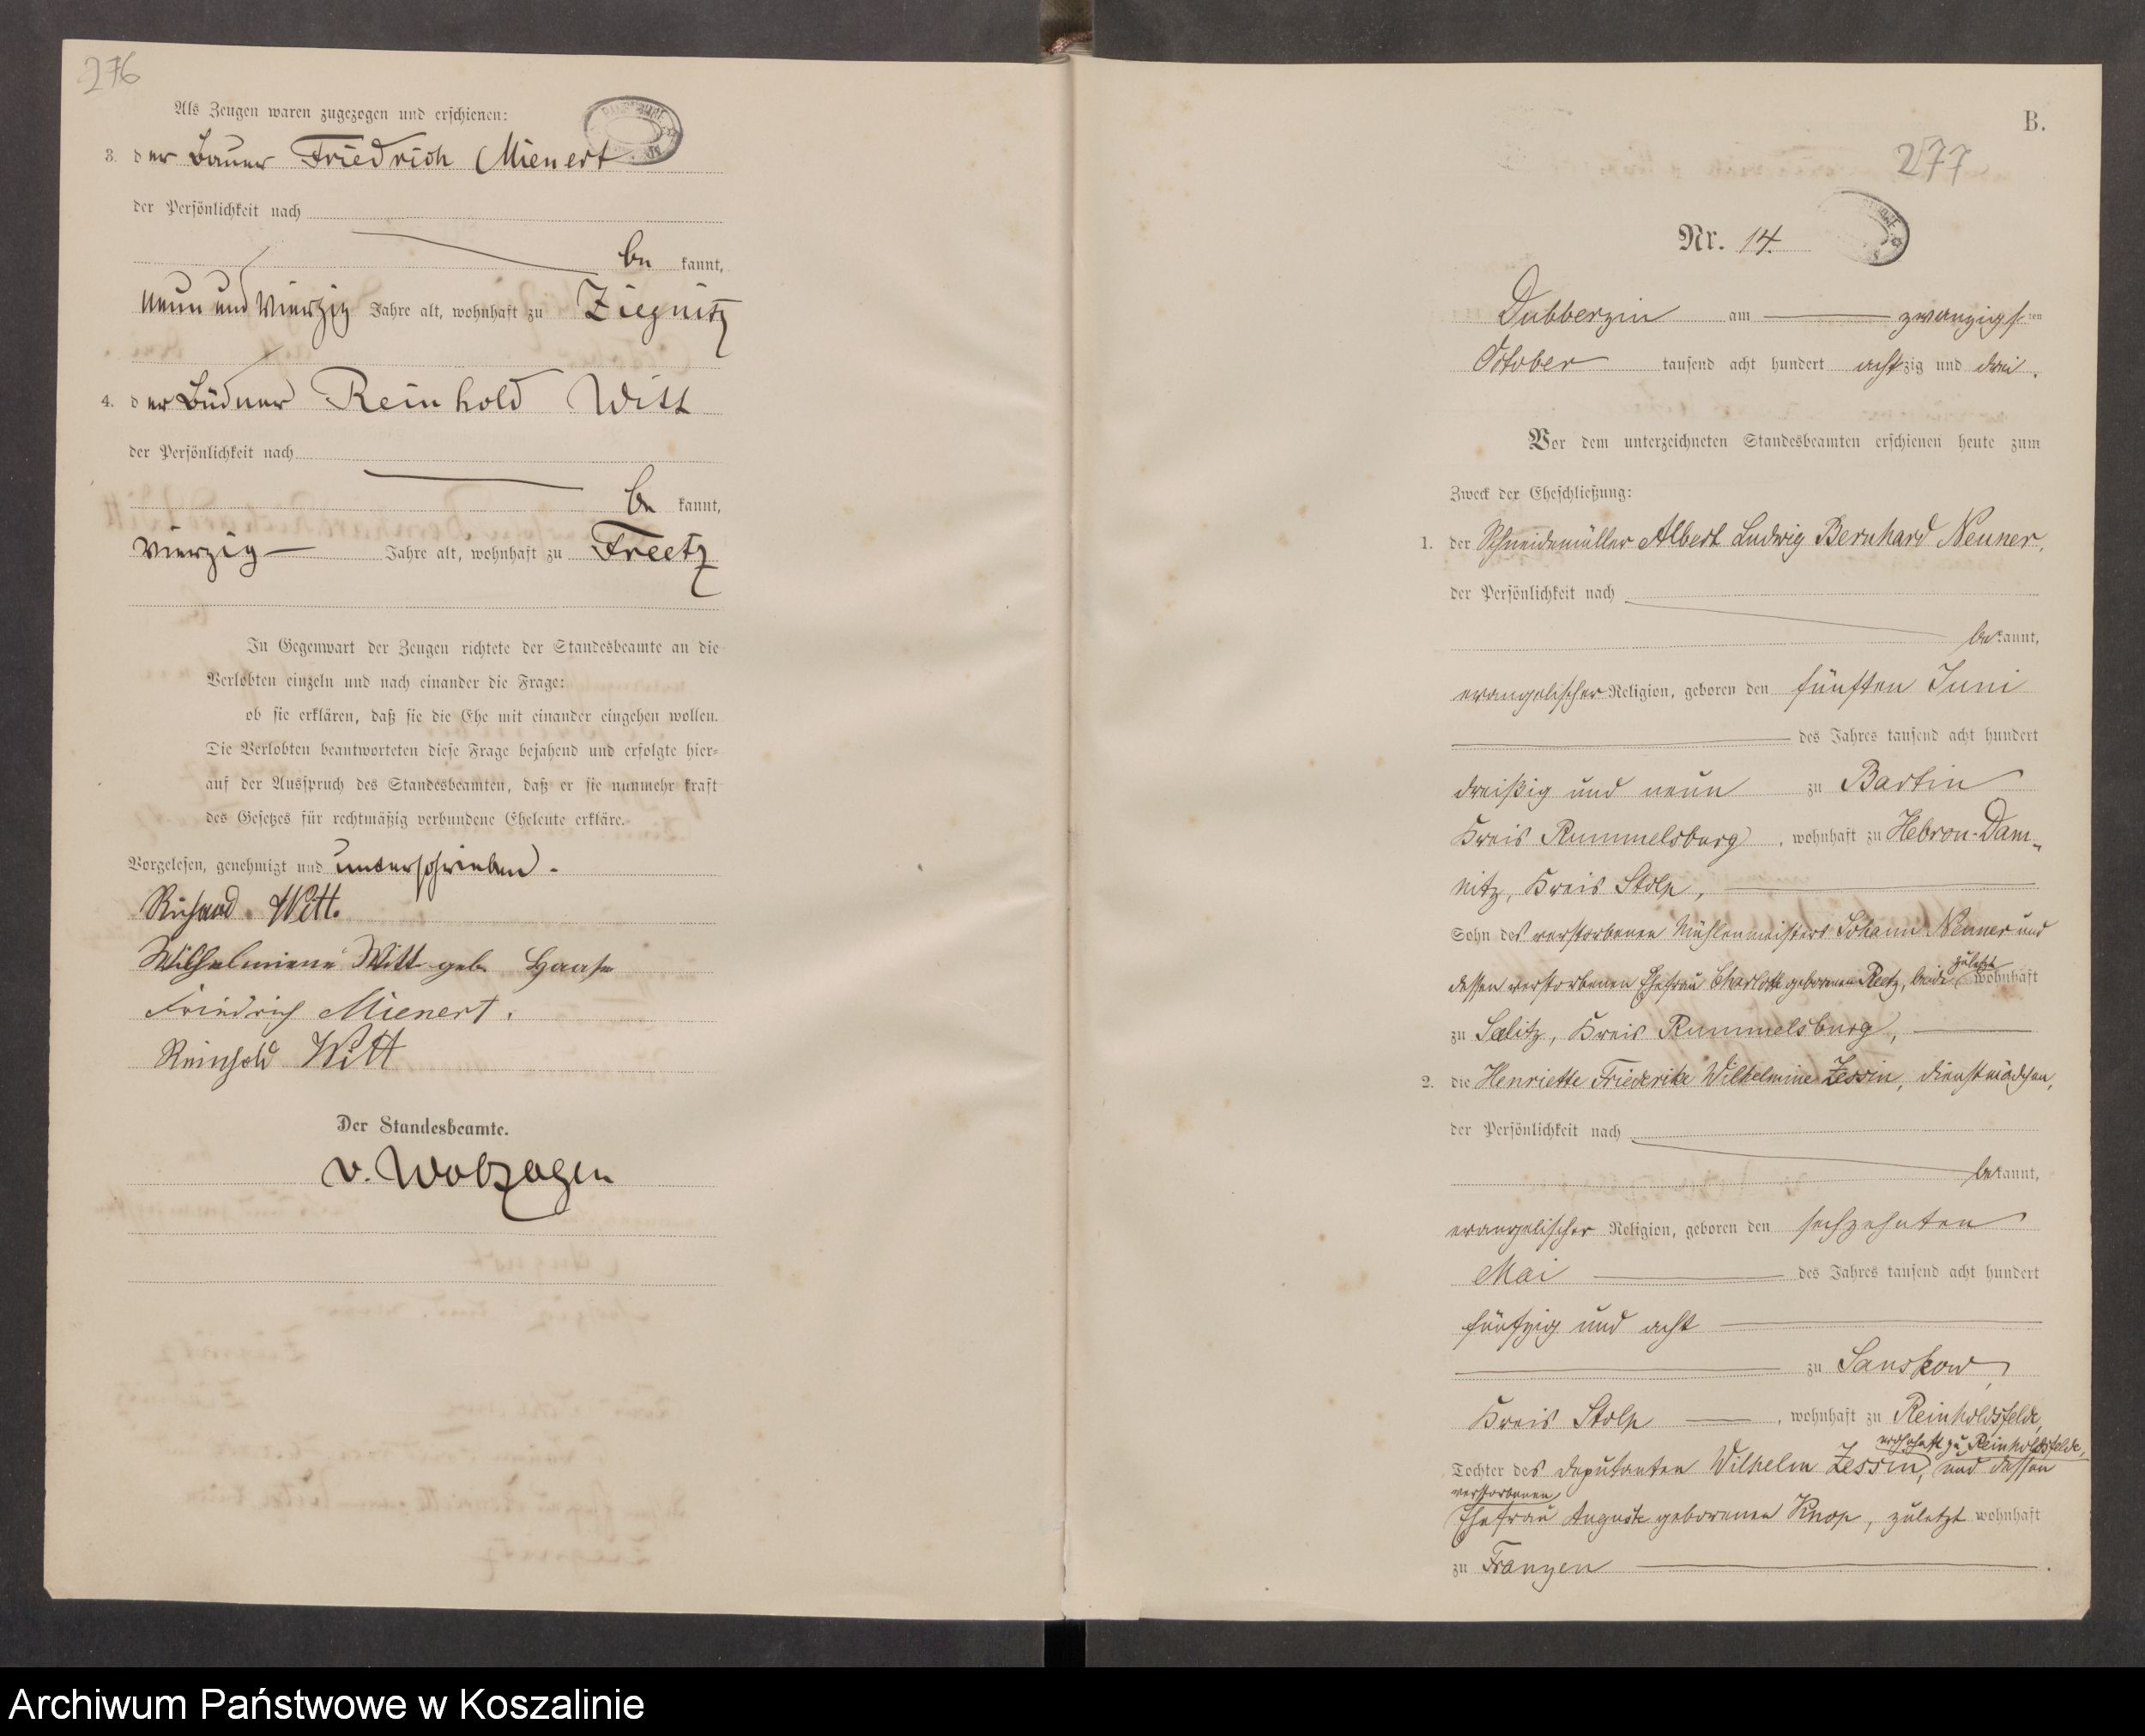 276
Als Zeugen waren zugezogen und erschienen:
3. der Bauer Friedrich Mienert
der Persönlichkeit nach
be kannt,
neun und vierzig Jahre alt, wohnhaft zu Ziegnitz
4. der Büdner Reinhold Witt
der Persönlichkeit nach
be kannt,
vierzig Jahre alt, wohnhaft zu Freetz
In Gegenwart der Zeugen richtete der Standesbeamte an die
Verlobten einzeln und nach einander die Frage:
ob sie erklären, daß sie die Ehe mit einander eingehen wollen.
Die Verlobten beantworteten diese Frage bejahend und erfolgte hier-
auf der Ausspruch des Standesbeamten, daß er sie nunmehr kraft
des Gesetzes für rechtmäßig verbundene Eheleute erkläre.
Vorgelesen, genehmigt und unterschrieben.
Richard Witt.
Wilhelmiene Witt geb. Haase
Friedrich Mienert.
Reinhold Witt
Der Standesbeamte.
v. Wolzogen
B.
277
Nr. 14.
Dubberzin am zwanzigsten
October tausend acht hundert achtzig und drei.
Vor dem unterzeichneten Standesbeamten erschienen heute zum
Zweck der Eheschließung:
1. der Schneidemüller Albert Ludwig Bernhard Neuner,
der Persönlichkeit nach
bekannt,
evangelischer Religion, geboren den fünften Juni
des Jahres tausend acht hundert
dreißig und neun zu Bartin
Kreis Rummelsburg, wohnhaft zu Hebron-Dam-
nitz, Kreis Stolp,
Sohn des verstorbenen Mühlenmeisters Johann Neuner und
dessen verstorbenen Ehefrau Charlotte geborenen Reetz, beide zuletzt wohnhaft
zu Sellitz, Kreis Rummelsburg,
2. die Henriette Friederike Wilhelmine Zessin, Dienstmädchen,
der Persönlichkeit nach
bekannt,
evangelischer Religion, geboren den sechzehnten
Mai des Jahres tausend acht hundert
fünfzig und acht
zu Sanskow,
Kreis Stolp, wohnhaft zu Reinholdsfelde,
wohnhaft zu Reinholdsfelde,
Tochter des Deputanten Wilhelm Zessin, und dessen
verstorbenen
Ehefrau Auguste geborenen Knop, zuletzt wohnhaft
zu Franzen.
Archiwum Państwowe w Koszalinie